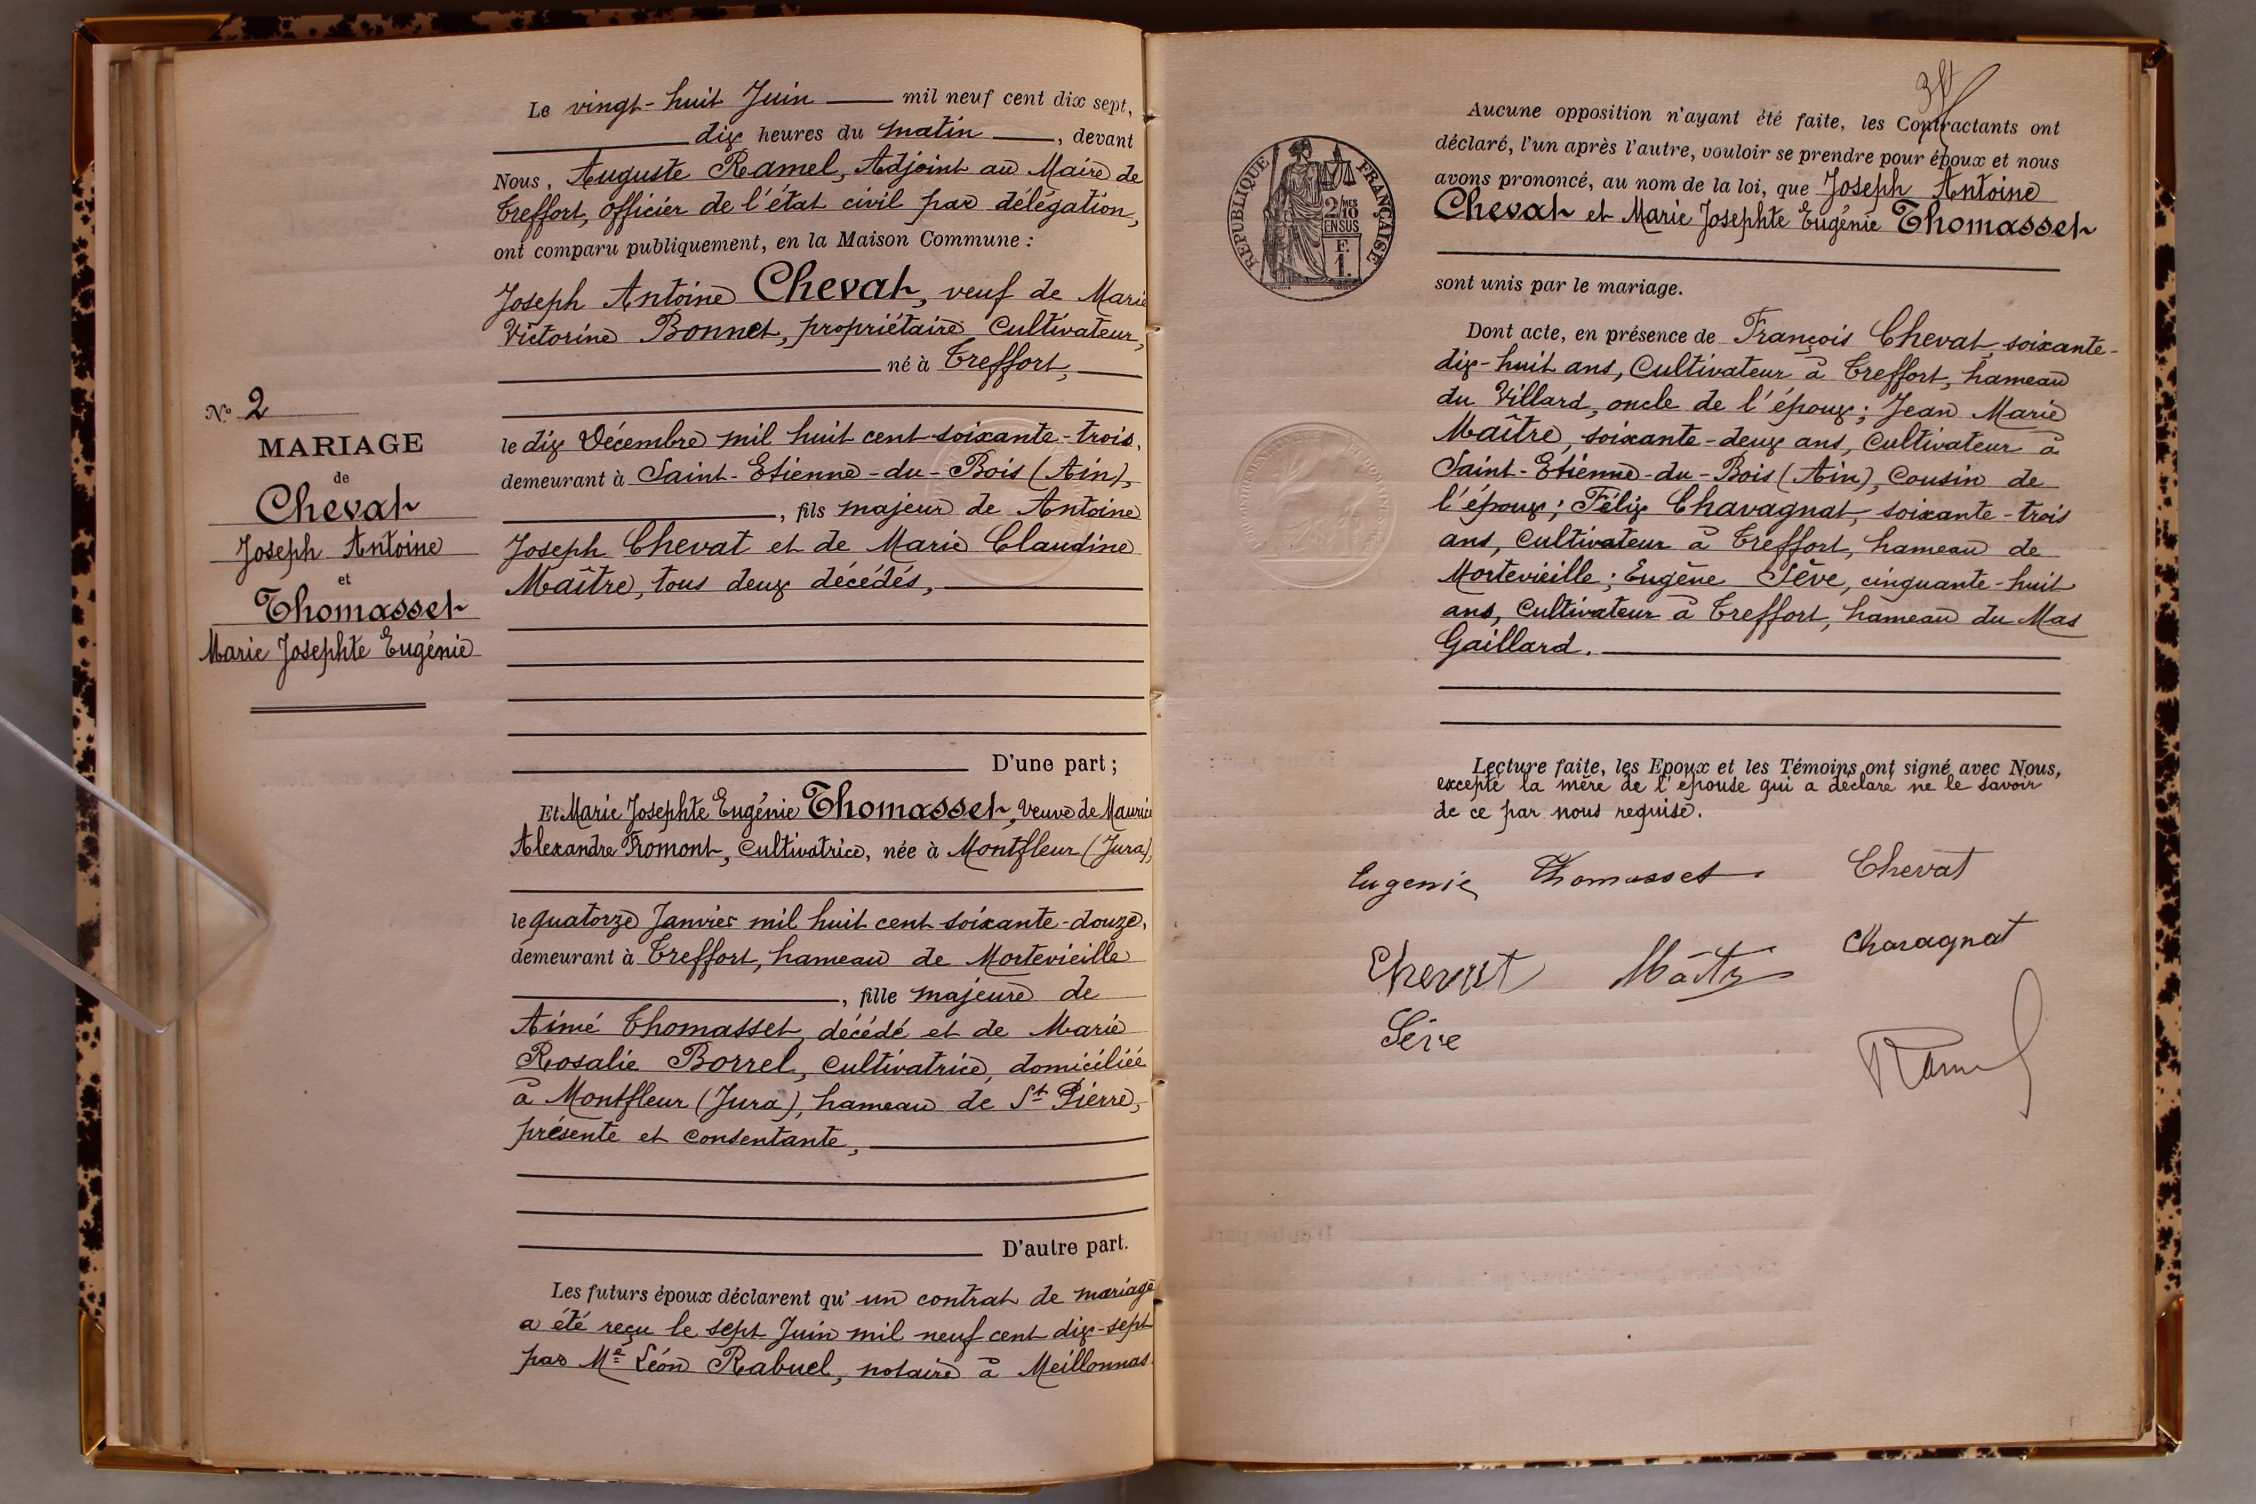 Nº 2
MARIAGE
de
Chevat
Joseph Antoine
et
Thomasset
Marie Josephte Eugénie
Le vingt-huit Juin mil neuf cent dix sept,
dix heures du matin, devant
Nous, Auguste Ramel, Adjoint au Maire de
Treffort, officier de l'état civil par délégation,
ont comparu publiquement, en la Maison Commune :
Joseph Antoine Chevat, veuf de Marie
Victorine Bonnet, propriétaire Cultivateur,
né à Treffort,
le dix Décembre mil huit cent soixante-trois,
demeurant à Saint-Etienne-du-Bois (Ain),
, fils majeur de Antoine
Joseph Chevat et de Marie Claudine
Maître, tous deux décédés,
D'une part ;
Et Marie Josephte Eugénie Thomasset, Veuve de Maurice
Alexandre Fromont, Cultivatrice, née à Montfleur (Jura),
le quatorze Janvier mil huit cent soixante-douze,
demeurant à Treffort, hameau de Mortevieille
, fille majeure de
Aimé Thomasset, décédé et de Marie
Rosalie Borrel, cultivatrice, domiciliée
à Montfleur (Jura), hameau de St Pierre,
présente et consentante,
D'autre part.
Les futurs époux déclarent qu'un contrat de mariage
a été reçu le sept Juin mil neuf cent dix-sept
par Me Léon Rabuel, notaire à Meillonnas.
RÉPUBLIQUE FRANÇAISE
2/10 MES
EN SUS
F.
1.
Aucune opposition n'ayant été faite, les Contractants ont
déclaré, l'un après l'autre, vouloir se prendre pour époux et nous
avons prononcé, au nom de la loi, que Joseph Antoine
Chevat et Marie Josephte Eugénie Thomasset
sont unis par le mariage.
Dont acte, en présence de François Chevat, soixante-
dix-huit ans, Cultivateur à Treffort, hameau
du Villard, oncle de l'époux ; Jean Marie
Maître, soixante-deux ans, Cultivateur à
Saint-Etienne-du-Bois (Ain), Cousin de
l'époux ; Félix Chavagnat, soixante-trois
ans, Cultivateur à Treffort, hameau de
Mortevieille ; Eugène Sève, cinquante-huit
ans, Cultivateur à Treffort, hameau du Mas
Gaillard.
Lecture faite, les Epoux et les Témoins ont signé avec Nous,
excepté la mère de l'épouse qui a déclaré ne le savoir
de ce par nous requise.
Eugenie Thomasset Chevat
Chevat Maître Chavagnat
Sève
Ramel